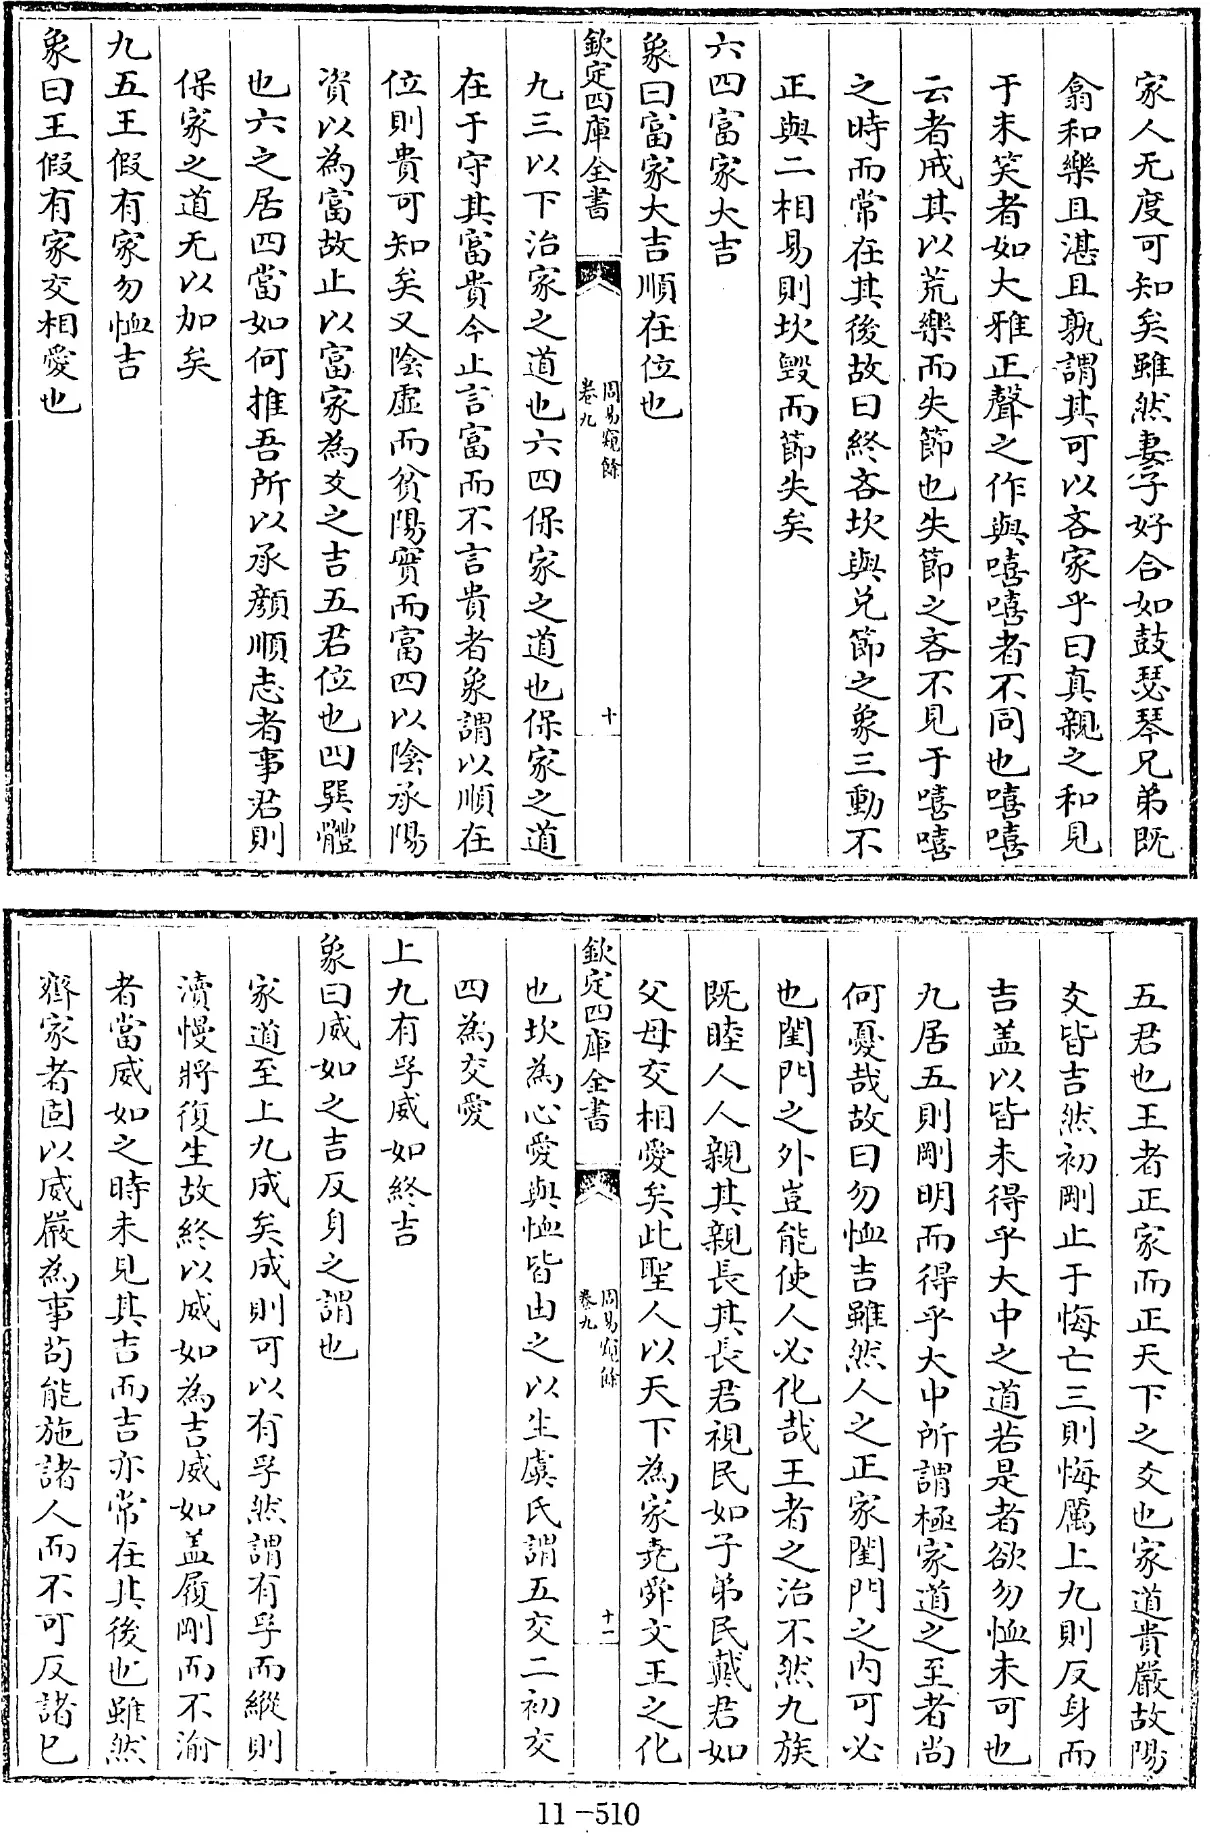 家人无度可知矣雖然妻子好合如鼓瑟琴兄弟既
翕和樂且湛且孰謂其可以吝家乎曰真親之和見
于未笑者如大雅正聲之作與嘻嘻者不同也嘻嘻
云者戒其以荒樂而失節也失節之吝不見于嘻嘻
之時而常在其後故曰終吝坎與兑節之象三動不
正與二相易則坎毀而節失矣
六四富家大吉
象曰富家大吉順在位也
欽定四庫全書
周易窺餘
卷九
十
九三以下治家之道也六四保家之道也保家之道
在于守其富貴今止言富而不言貴者象謂以順在
位則貴可知矣又陰虛而貧陽實而富四以陰承陽
資以為富故止以富家為爻之吉五君位也四巽體
也六之居四當如何推吾所以承顏順志者事君則
保家之道无以加矣
九五王假有家勿恤吉
象曰王假有家交相愛也
五君也王者正家而正天下之爻也家道貴嚴故陽
爻皆吉然初剛止于悔亡三則悔厲上九則反身而
吉盖以皆未得乎大中之道若是者欲勿恤未可也
九居五則剛明而得乎大中所謂極家道之至者尚
何憂哉故曰勿恤吉雖然人之正家閨門之内可必
也閨門之外豈能使人必化哉王者之治不然九族
既睦人人親其親長其長君視民如子弟民戴君如
父母交相愛矣此聖人以天下為家堯舜文王之化
欽定四庫全書
周易窺餘
卷九
十一
也坎為心愛與恤皆由之以生虞氏謂五交二初交
四為交愛
上九有孚威如終吉
象曰威如之吉反身之謂也
家道至上九成矣成則可以有孚然謂有孚而縱則
瀆慢將復生故終以威如為吉威如盖履剛而不渝
者當威如之時未見其吉而吉亦常在其後也雖然
齊家者固以威嚴為事苟能施諸人而不可反諸已
11-510